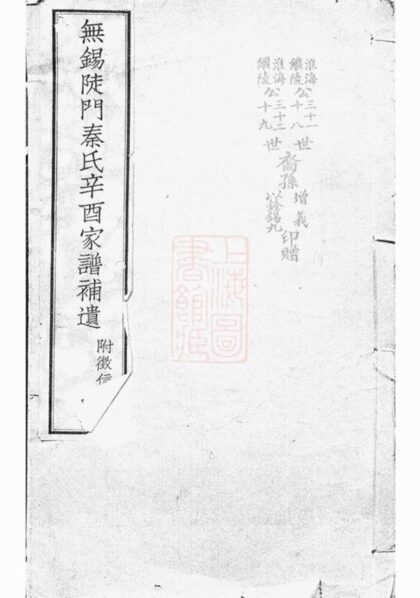 淮海公三十一世
陵公十八世
淮海公三十二世
陵公十九世
裔孫
增義
錫九
印贈
上海圖
書館藏
無錫陡門秦氏辛酉家譜補遺
附徵信